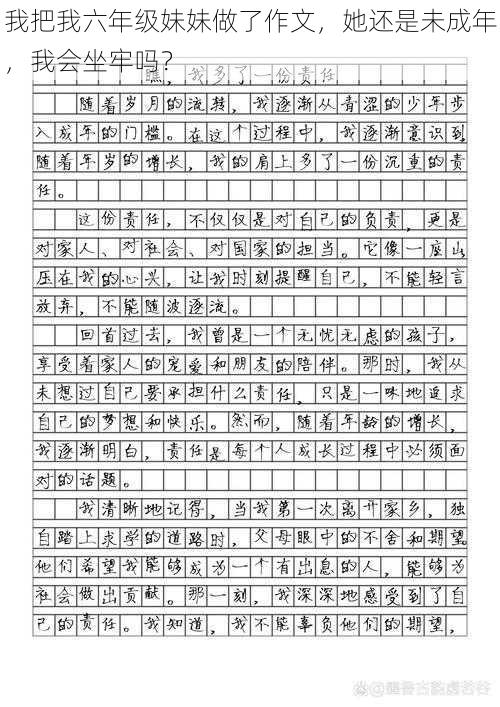 我把我六年级妹妹做了作文，她还是未成年
，我会坐牢吗？
瞧，我多了一份责任
随着岁月的流转，我逐渐从青涩的少年步
入成年的门槛。在这个过程中，我逐渐意识到
随着年岁的增长，我的肩上多了一份沉重的责
任。
这份责任，不仅仅是对自己的负责，更是
对家人、对社会、对国家的担当。它像一座山
压在我的心头，让我时刻提醒自己，不能轻言
放弃，不能随波逐流。
回首过去，我曾是一个无忧无虑的孩子，
享受着家人的宠爱和朋友的陪伴。那时，我从
未想过自己要承担什么责任，只是一味地追求
自己的梦想和快乐。然而，随着年龄的增长，
我逐渐明白，责任是每个人成长过程中必须面
对的话题。
我清晰地记得，当我第一次离开家乡，独
自踏上求学的道路时，父母眼中的不舍和期望。
他们希望我能够成为一个有出息的人，能够为
社会做出贡献。那一刻，我深深地感受到了自
己的责任。我知道，我不能辜负他们的期望，